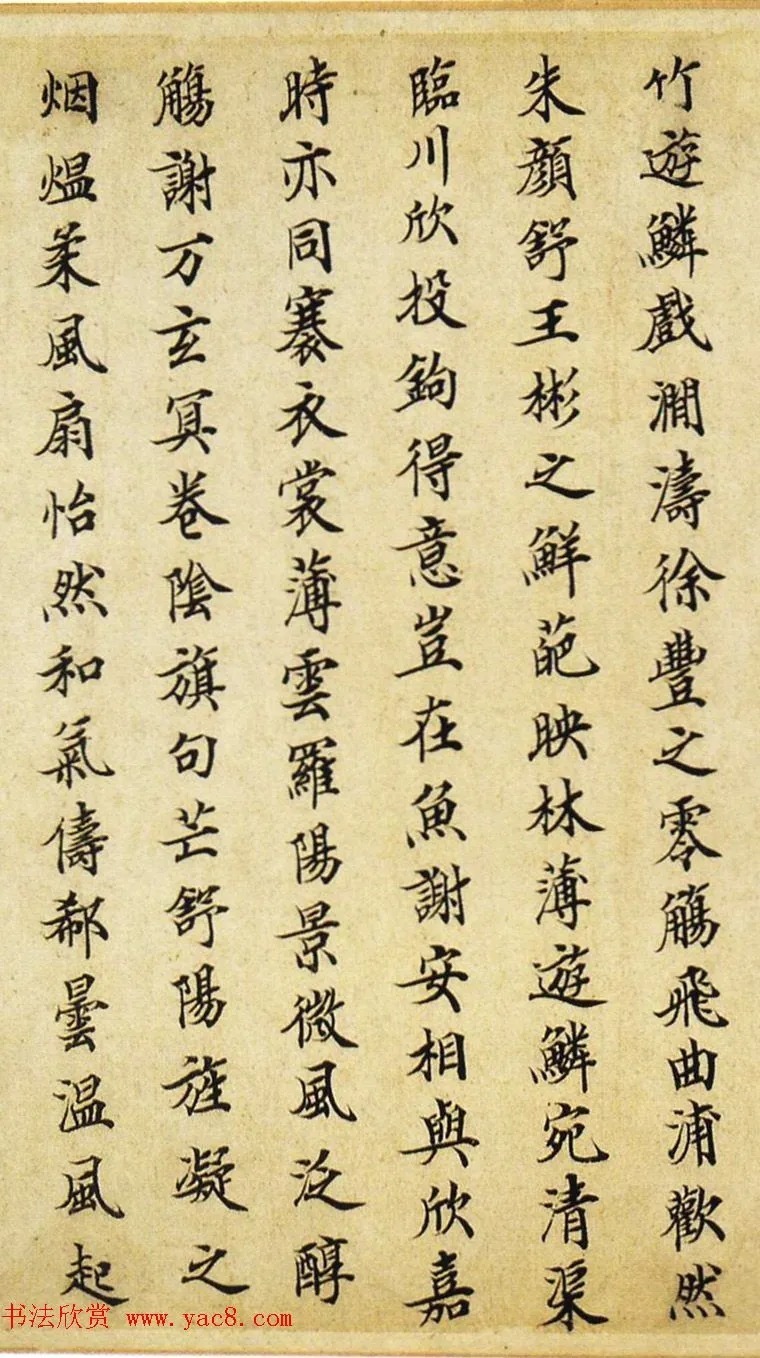 竹遊鱗戲澗濤徐豐之零觴飛曲浦歡然
朱顏舒王彬之鮮葩映林薄遊鱗宛清渠
臨川欣投鉤得意豈在魚謝安相與欣嘉
時亦同褰衣裳薄雲羅陽景微風泛醇
觴謝万玄冥卷陰旗句芒舒陽旌凝之
烟煴柔風扇怡然和氣儔郗曇温風起
书法欣赏 www.yac8.com